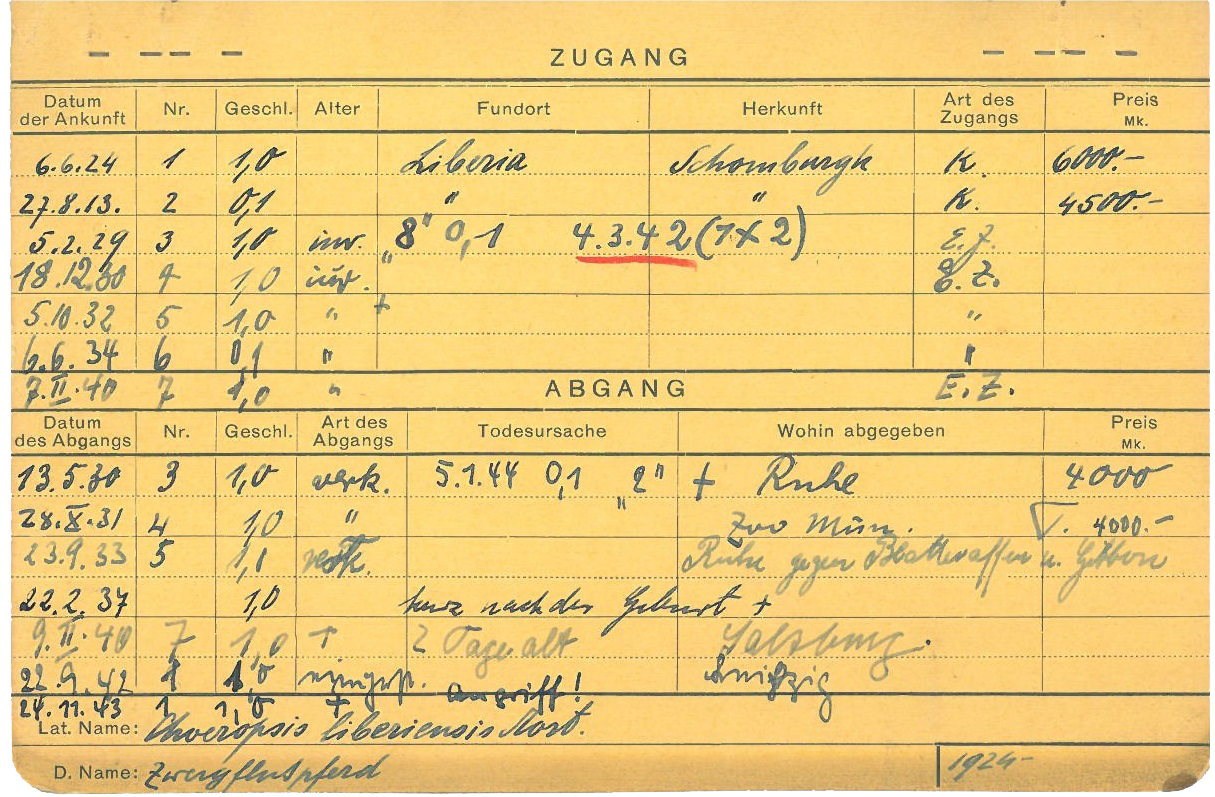 ZUGANG
Datum der Ankunft Nr. Geschl. Alter Fundort Herkunft Art des Zugangs Preis Mk.
6.6.24 1 1,0 Liberia Schomburgk K. 6000.-
27.8.13. 2 0,1 " " K. 4500.-
5.2.29 3 1,0 inv. "8" 0,1 4.3.42 (1x2) E.Z.
18.12.30 4 1,0 " E.Z.
5.10.32 5 1,0 " + "
6.6.34 6 0,1 " "
7.II.40 7 1,0 " E.Z.
ABGANG
Datum des Abgangs Nr. Geschl. Art des Abgangs Todesursache Wohin abgegeben Preis Mk.
13.5.30 3 1,0 verk. 5.1.44 0,1 "2" + Ruhe 4000
28.X.31 4 1,0 " Zoo Mün. 4000.-
23.9.33 5 1,1 Ruhe gegen u. Gibbon
22.2.37 1,0 kurz nach der Geburt +
9.II.40 7 1,0 + 2 Tage alt Salzburg.
22.9.42 1 1,0 Leipzig
24.11.43 1 1,0 + Angriff!
Lat. Name: Choeropsis liberiensis Mort.
D. Name: Zwergflusspferd 1924-